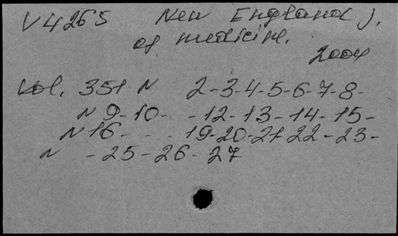 V4265 New England j.
of medicine.
2004
Vol. 351 N 2-3-4-5-6-7-8-
N 9-10- -12-13-14-15-
N 16- - - 19-20-21-22-23-
N -25-26-27